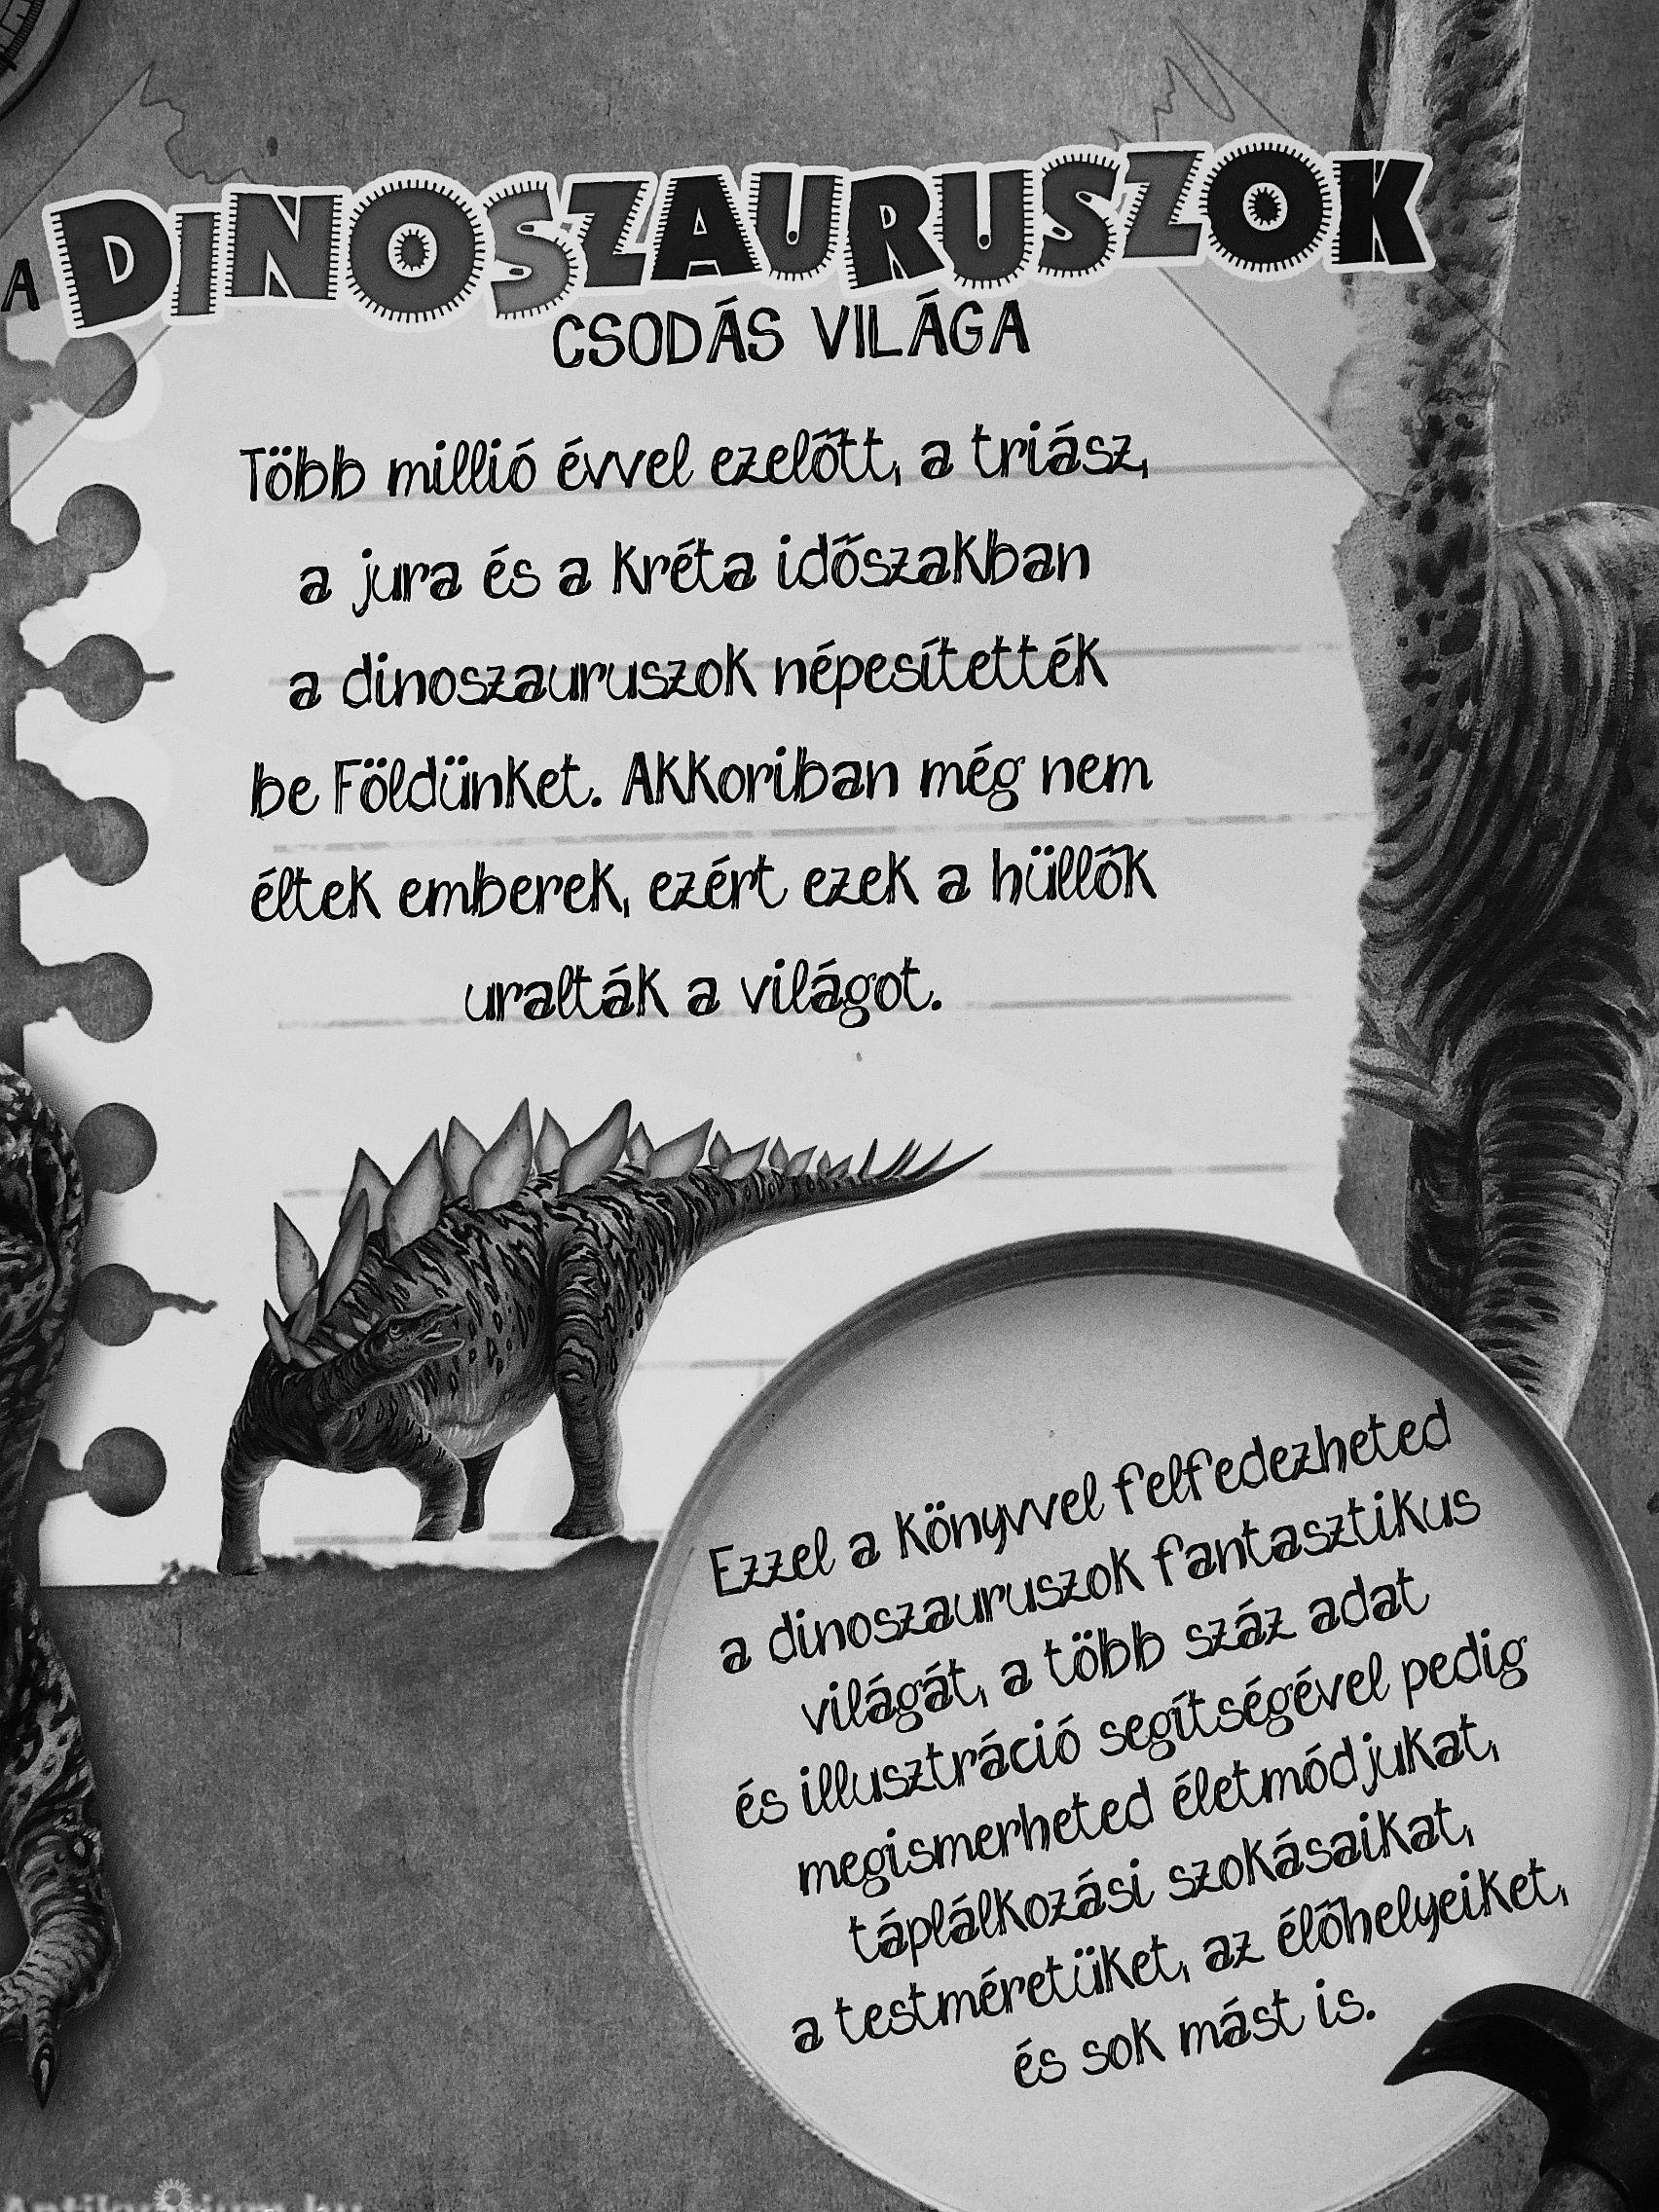 A DINOSZAURUSZOK
CSODÁS VILÁGA
Több millió évvel ezelőtt, a triász,
a jura és a kréta időszakban
a dinoszauruszok népesítették
be Földünket. Akkoriban még nem
éltek emberek, ezért ezek a hüllők
uralták a világot.
Ezzel a könyvvel felfedezheted
a dinoszauruszok fantasztikus
világát, a több száz adat
és illusztráció segítségével pedig
megismerheted életmódjukat,
táplálkozási szokásaikat,
a testméretüket, az élőhelyeiket,
és sok mást is.